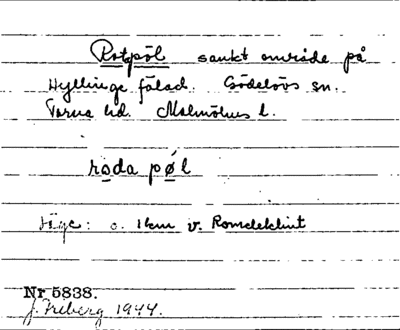 Rotpöl sankt område på
Hyllinge fälad. Gödelövs sn.
Torna hd. Malmöhus l.
roda pøl
Läge: c. 1km v. Romeleklint
Nr 5838.
J. Freberg 1944.